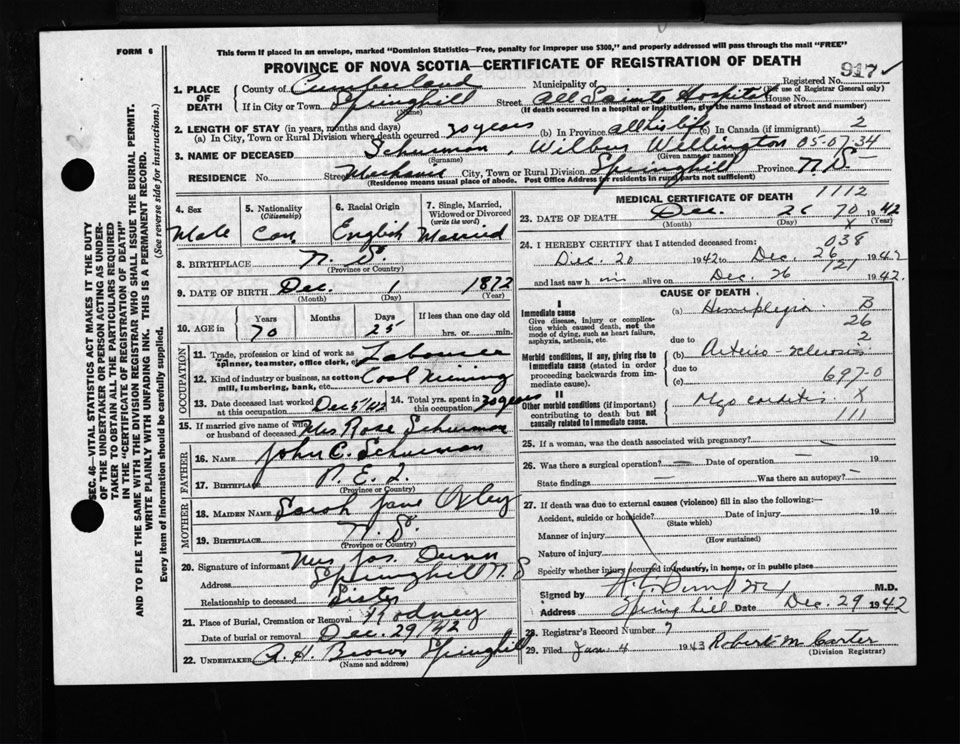 FORM 6
This form if placed in an envelope, marked "Dominion Statistics—Free, penalty for improper use $300," and properly addressed will pass through the mail "FREE"
PROVINCE OF NOVA SCOTIA—CERTIFICATE OF REGISTRATION OF DEATH
917
Registered No.
(For use of Registrar General only)
1. PLACE OF DEATH
County of Cumberland Municipality of
If in City or Town Springhill Street All Saints Hospital House No.
(Name) (If death occurred in a hospital or institution, give the name instead of street and number)
2. LENGTH OF STAY (in years, months and days)
(a) In City, Town or Rural Division where death occurred 30 years (b) In Province all his life (c) In Canada (if immigrant) 2
3. NAME OF DECEASED Schurman, Wilbur Wellington 05-07-34
(Surname) (Given name or names)
RESIDENCE No. Street Mechanic City, Town or Rural Division Springhill Province N.S.
(Residence means usual place of abode. Post Office Address for residents in rural parts not sufficient)
4. Sex Male
5. Nationality (Citizenship) Can
6. Racial Origin English
7. Single, Married, Widowed or Divorced (write the word) Married
8. BIRTHPLACE N.S.
(Province or Country)
9. DATE OF BIRTH Dec. 1 1872
(Month) (Day) (Year)
10. AGE in Years 70 Months Days 25 If less than one day old hrs. or min.
OCCUPATION
11. Trade, profession or kind of work as spinner, teamster, office clerk, etc. Labourer
12. Kind of industry or business, as cotton mill, lumbering, bank, etc. Coal Mining
13. Date deceased last worked at this occupation Dec 5/42 14. Total yrs. spent in this occupation 30 years
15. If married give name of wife or husband of deceased Mrs Rose Schurman
FATHER
16. NAME John C. Schurman
17. BIRTHPLACE P.E.I.
(Province or Country)
MOTHER
18. MAIDEN NAME Sarah Jane Oxley
19. BIRTHPLACE N.S.
(Province or Country)
20. Signature of informant Mrs Jos. Dunn
Address Springhill N.S
Relationship to deceased Sister
21. Place of Burial, Cremation or Removal Rodney
Date of burial or removal Dec. 29/42
22. UNDERTAKER A. H. Brown Springhill
(Name and address)
MEDICAL CERTIFICATE OF DEATH
1112
23. DATE OF DEATH Dec. 26 70 1942
(Month) (Day) X (Year)
24. I HEREBY CERTIFY that I attended deceased from: 038
Dec. 20 1942 to Dec. 26 1942
121
and last saw h im alive on Dec. 26 1942.
CAUSE OF DEATH
I
Immediate cause
Give disease, injury or complication which caused death, not the mode of dying, such as heart failure, asphyxia, asthenia, etc.
(a) Hemiplegia B
26
2
due to
Morbid conditions, if any, giving rise to immediate cause (stated in order proceeding backwards from immediate cause).
(b) Arterio-sclerosis
due to
(c) 697-0
II
Other morbid conditions (if important) contributing to death but not causally related to immediate cause.
Myo carditis X
111
25. If a woman, was the death associated with pregnancy?
26. Was there a surgical operation? — Date of operation — 19
State findings — Was there an autopsy? —
27. If death was due to external causes (violence) fill in also the following:—
Accident, suicide or homicide? Date of injury 19
(State which)
Manner of injury
(How sustained)
Nature of injury
Specify whether injury occurred in industry, in home, or in public place
Signed by M.D.
Address Springhill Date Dec. 29 1942
28. Registrar's Record Number 7
29. Filed Jan. 4 1943 Robert M Carter
(Division Registrar)
SEC. 46—VITAL STATISTICS ACT MAKES IT THE DUTY
OF THE UNDERTAKER OR PERSON ACTING AS UNDER-
TAKER TO OBTAIN ALL THE PARTICULARS REQUIRED
IN THE "CERTIFICATE OF REGISTRATION OF DEATH"
AND TO FILE THE SAME WITH THE DIVISION REGISTRAR WHO SHALL ISSUE THE BURIAL PERMIT.
WRITE PLAINLY WITH UNFADING INK. THIS IS A PERMANENT RECORD.
Every item of information should be carefully supplied. (See reverse side for instructions.)